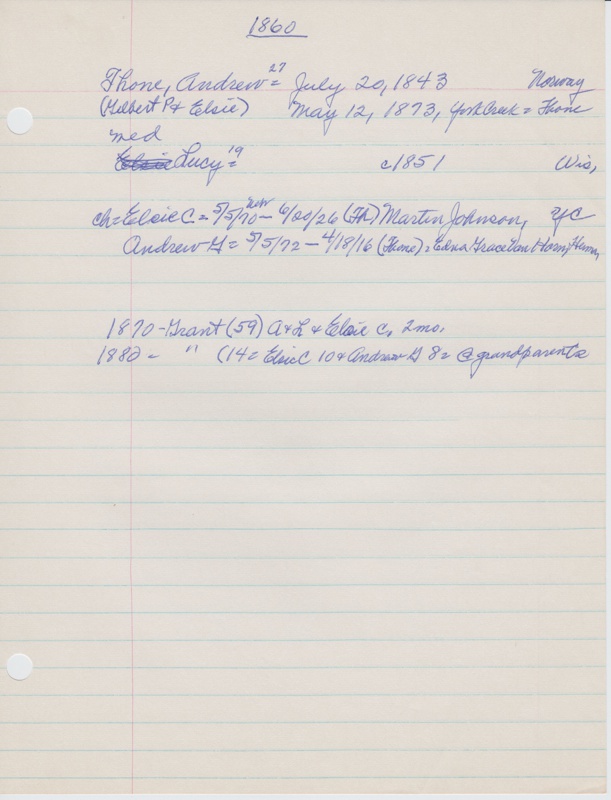 1860
Thone, Andrew = 27 July 20, 1843 Norway
(Helbert P & Elsie) May 12, 1873, York Creek = Thone
med
Elsie Lucy = 19 c1851 Wis,
ch = Elsie C. = 5/5/70 - 6/00/26 (Th) Martin Johnson, YC
Andrew G = 5/5/72 - 4/18/16 (Thone) = Edna Grace Van Horn,
1870 - Grant (59) A & L & Elsie C, 2 mo.
1880 - " (14 = Elsie C 10 & Andrew G 8 = @ grandparents